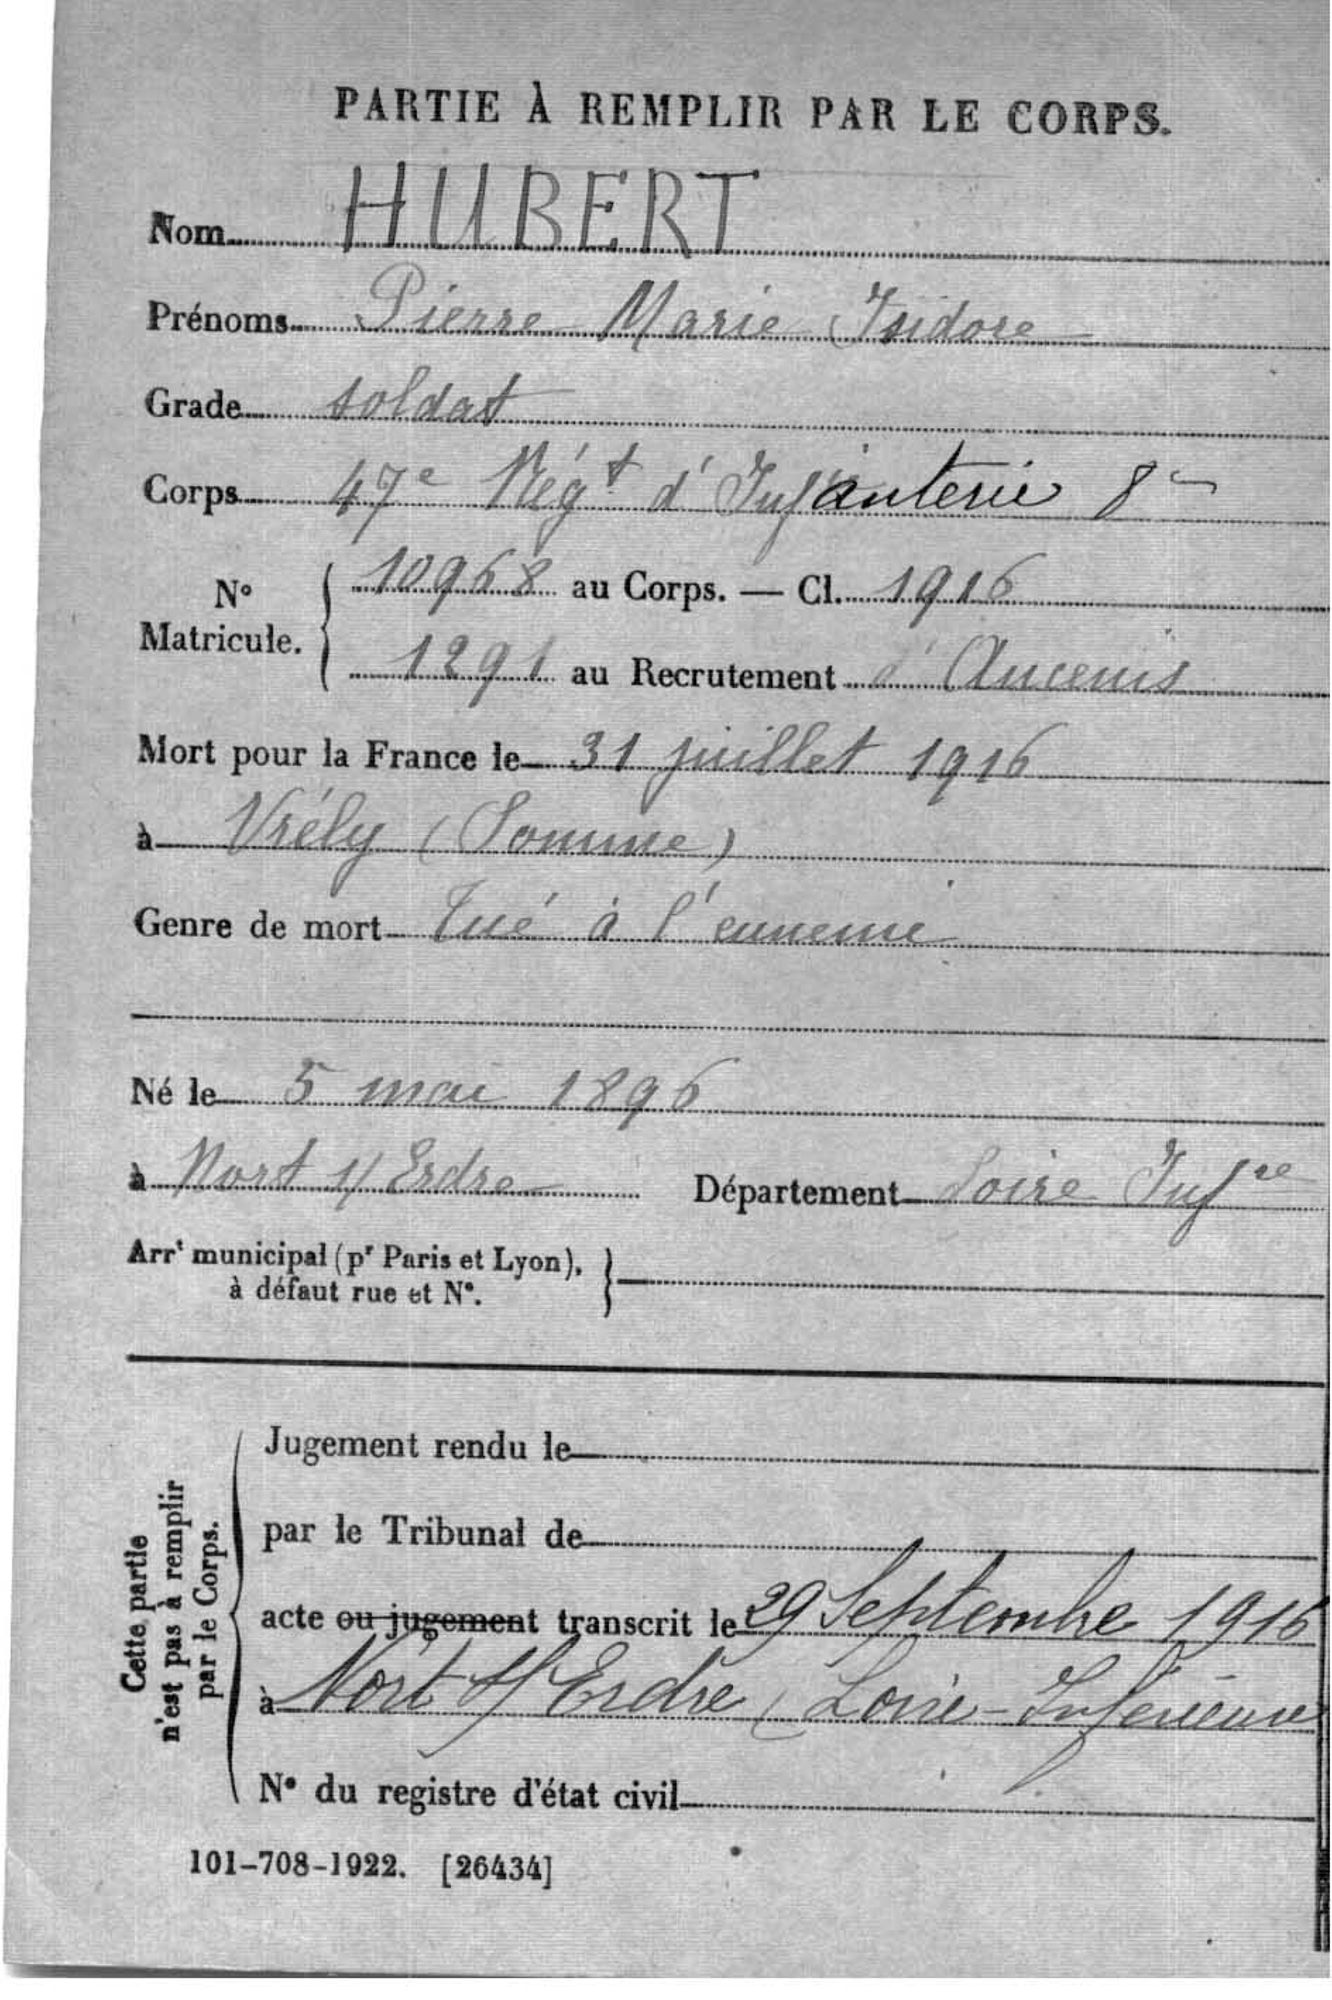 PARTIE À REMPLIR PAR LE CORPS.
Nom HUBERT
Prénoms Pierre Marie Isidore
Grade soldat
Corps 47e Régt d'Infanterie 8
N° Matricule. 10968 au Corps. — Cl. 1916
1291 au Recrutement d'Ancenis
Mort pour la France le 31 juillet 1916
à Vrély (Somme)
Genre de mort Tué à l'ennemi
Né le 5 mai 1896
à Nort s/ Erdre Département Loire Infre
Arrt municipal (pr Paris et Lyon),
à défaut rue et N°.
Cette partie
n'est pas à remplir
par le Corps.
Jugement rendu le
par le Tribunal de
acte ou jugement transcrit le 29 Septembre 1916
à Nort s/ Erdre (Loire-Inférieure
N° du registre d'état civil
101-708-1922. [26434]